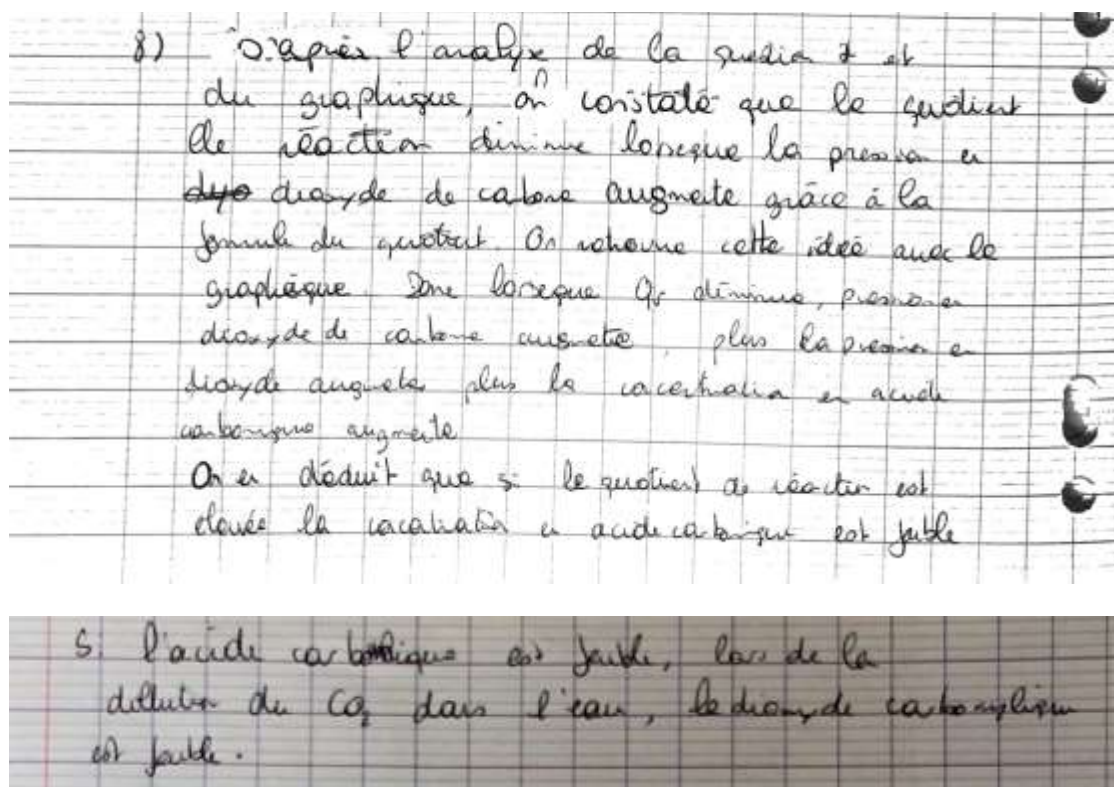 8) D'après l'analyse de la question 7 et
du graphique, on constate que le quotient
de réaction diminue lorsque la pression en
dyo dioxyde de carbone augmente grâce à la
formule du quotient. On retrouve cette idée avec le
graphique. Donc lorsque Qr diminue, pression en
dioxyde de carbone augmente, plus la pression en
dioxyde augmente plus la concentration en acide
carbonique augmente
On en déduit que si le quotient de réaction est
élevée la concentration en acide carbonique est faible
Si l'acide carbonique est faible, lors de la
dillution du CO2 dans l'eau, le dioxyde
est faible.